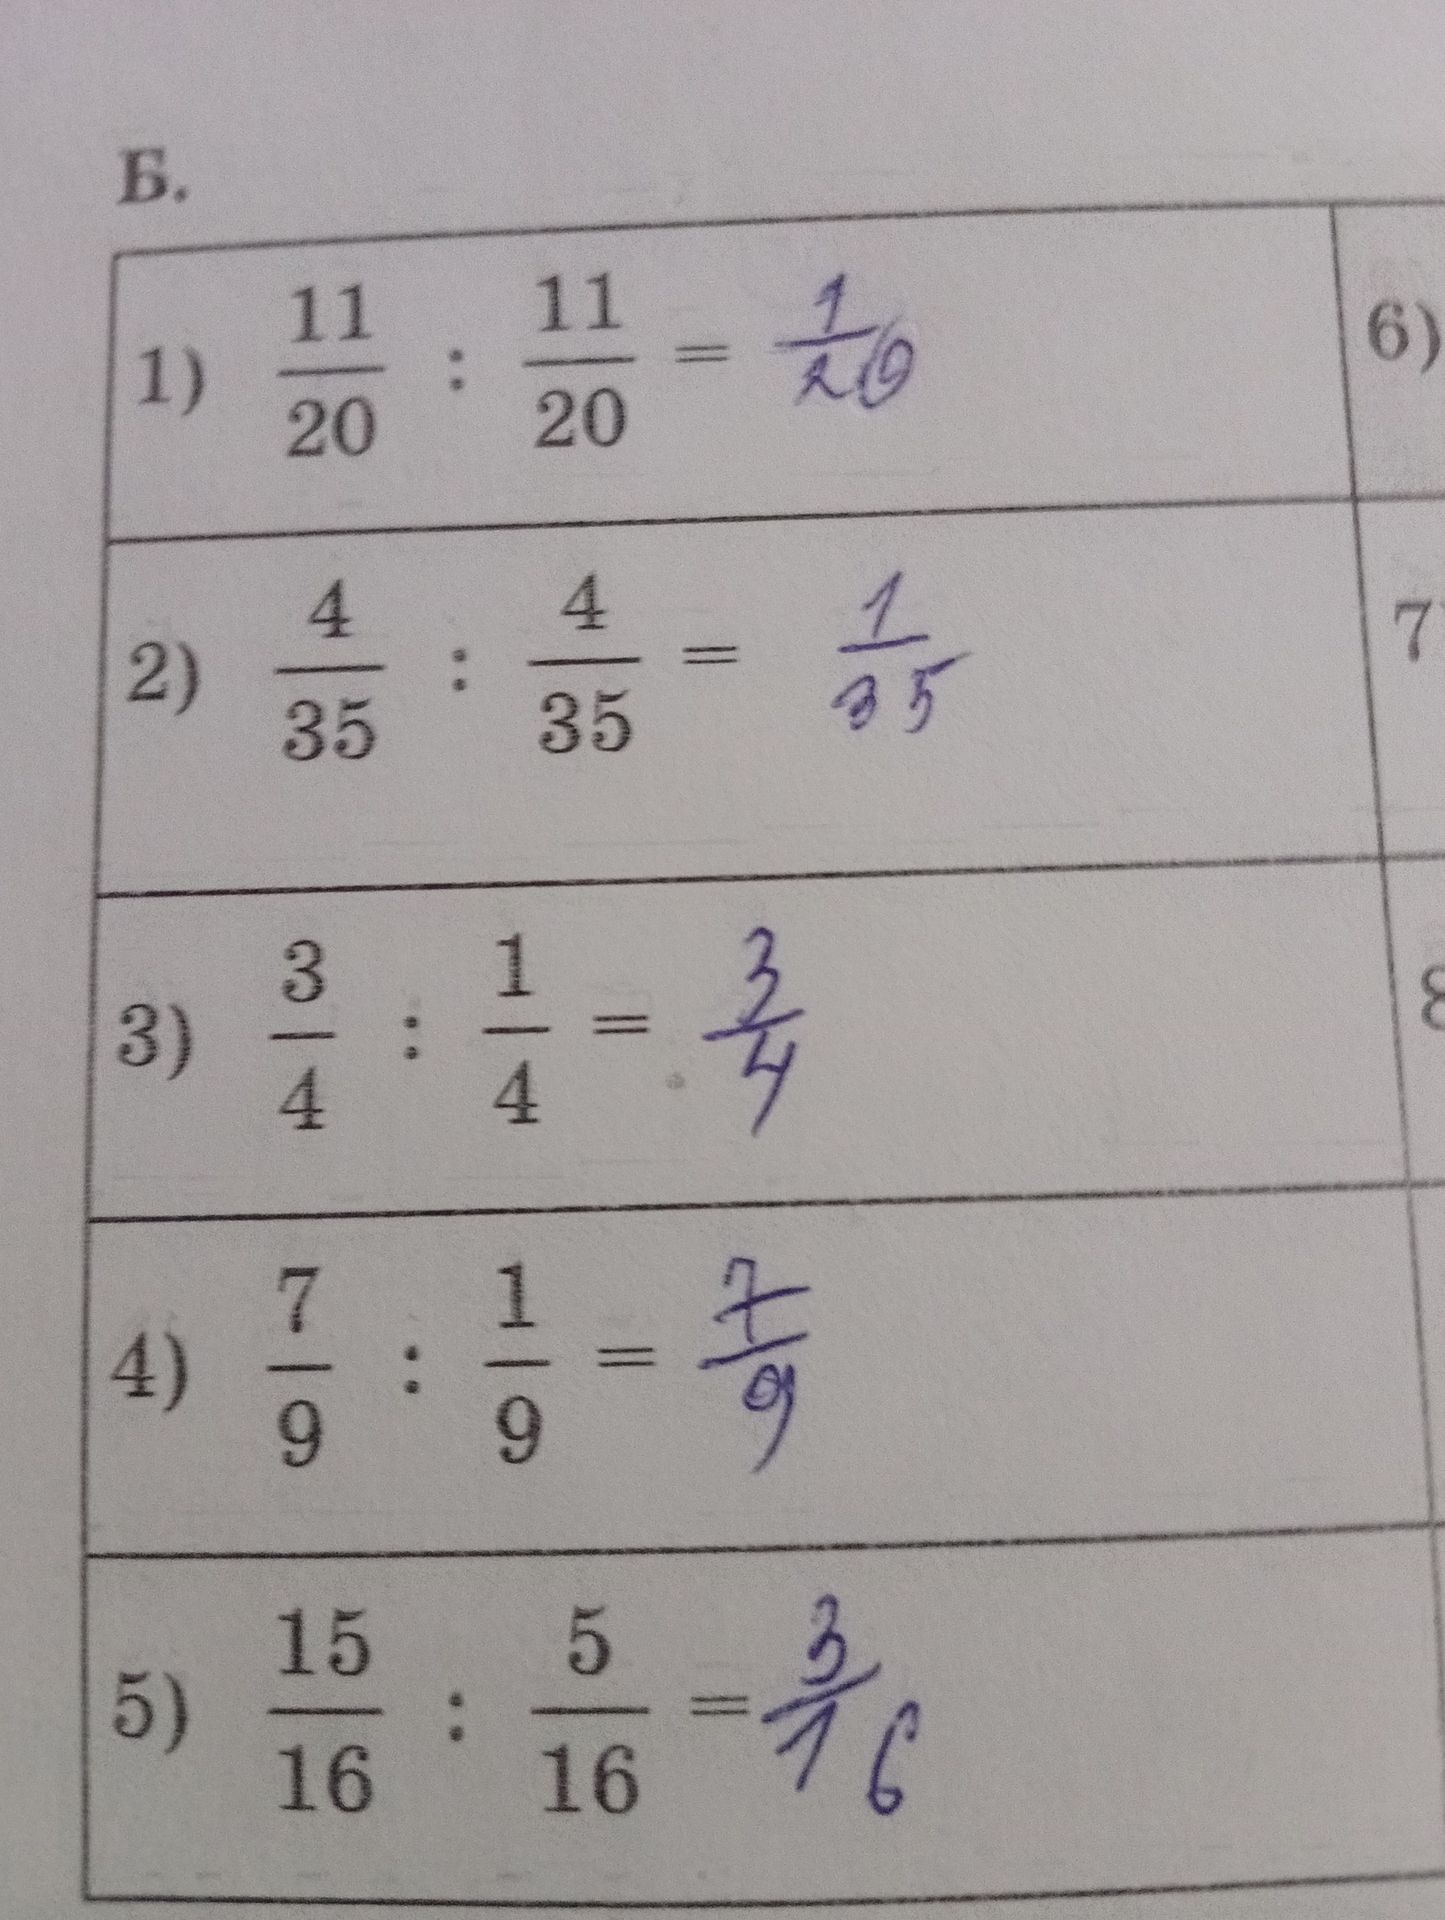 Б.
1) 11/20 : 11/20 = 1/20
6)
2) 4/35 : 4/35 = 1/35
7
3) 3/4 : 1/4 = 3/4
8
4) 7/9 : 1/9 = 7/9
5) 15/16 : 5/16 = 3/16